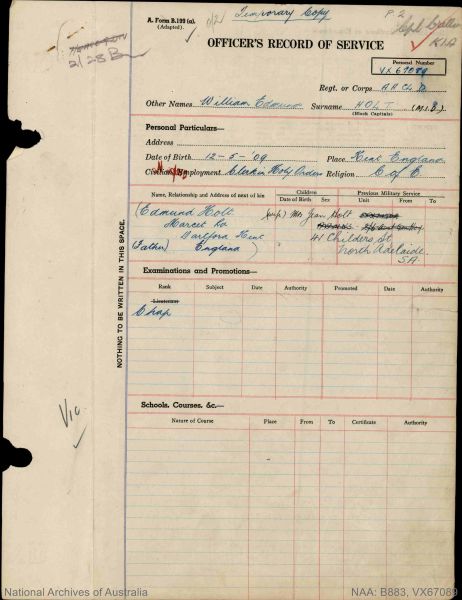 A. Form B.199 (a).
(Adapted).
Temporary Copy
P. 2
KIA
2/28 B
OFFICER'S RECORD OF SERVICE
Personal Number
VX 67089
Regt. or Corps A A Ch. D.
Other Names William Edmund Surname HOLT
(Block Capitals)
Personal Particulars—
Address
Date of Birth 12-5-'09 Place Kent England
Civilian Employment Clerk in Holy Orders Religion C of E
Name, Relationship and Address of next of kin
Children
Date of Birth Sex
Previous Military Service
Unit From To
(Edmund Holt
(wife) Mrs Jean Holt
Dartford Kent
41 Childers St
(Father) England
North Adelaide
S.A.
NOTHING TO BE WRITTEN IN THIS SPACE.
Examinations and Promotions—
Rank Subject Date Authority Promoted Date Authority
Lieutenant
Chap
Vic
Schools, Courses, &c.—
Nature of Course Place From To Certificate Authority
National Archives of Australia
NAA: B883, VX67089